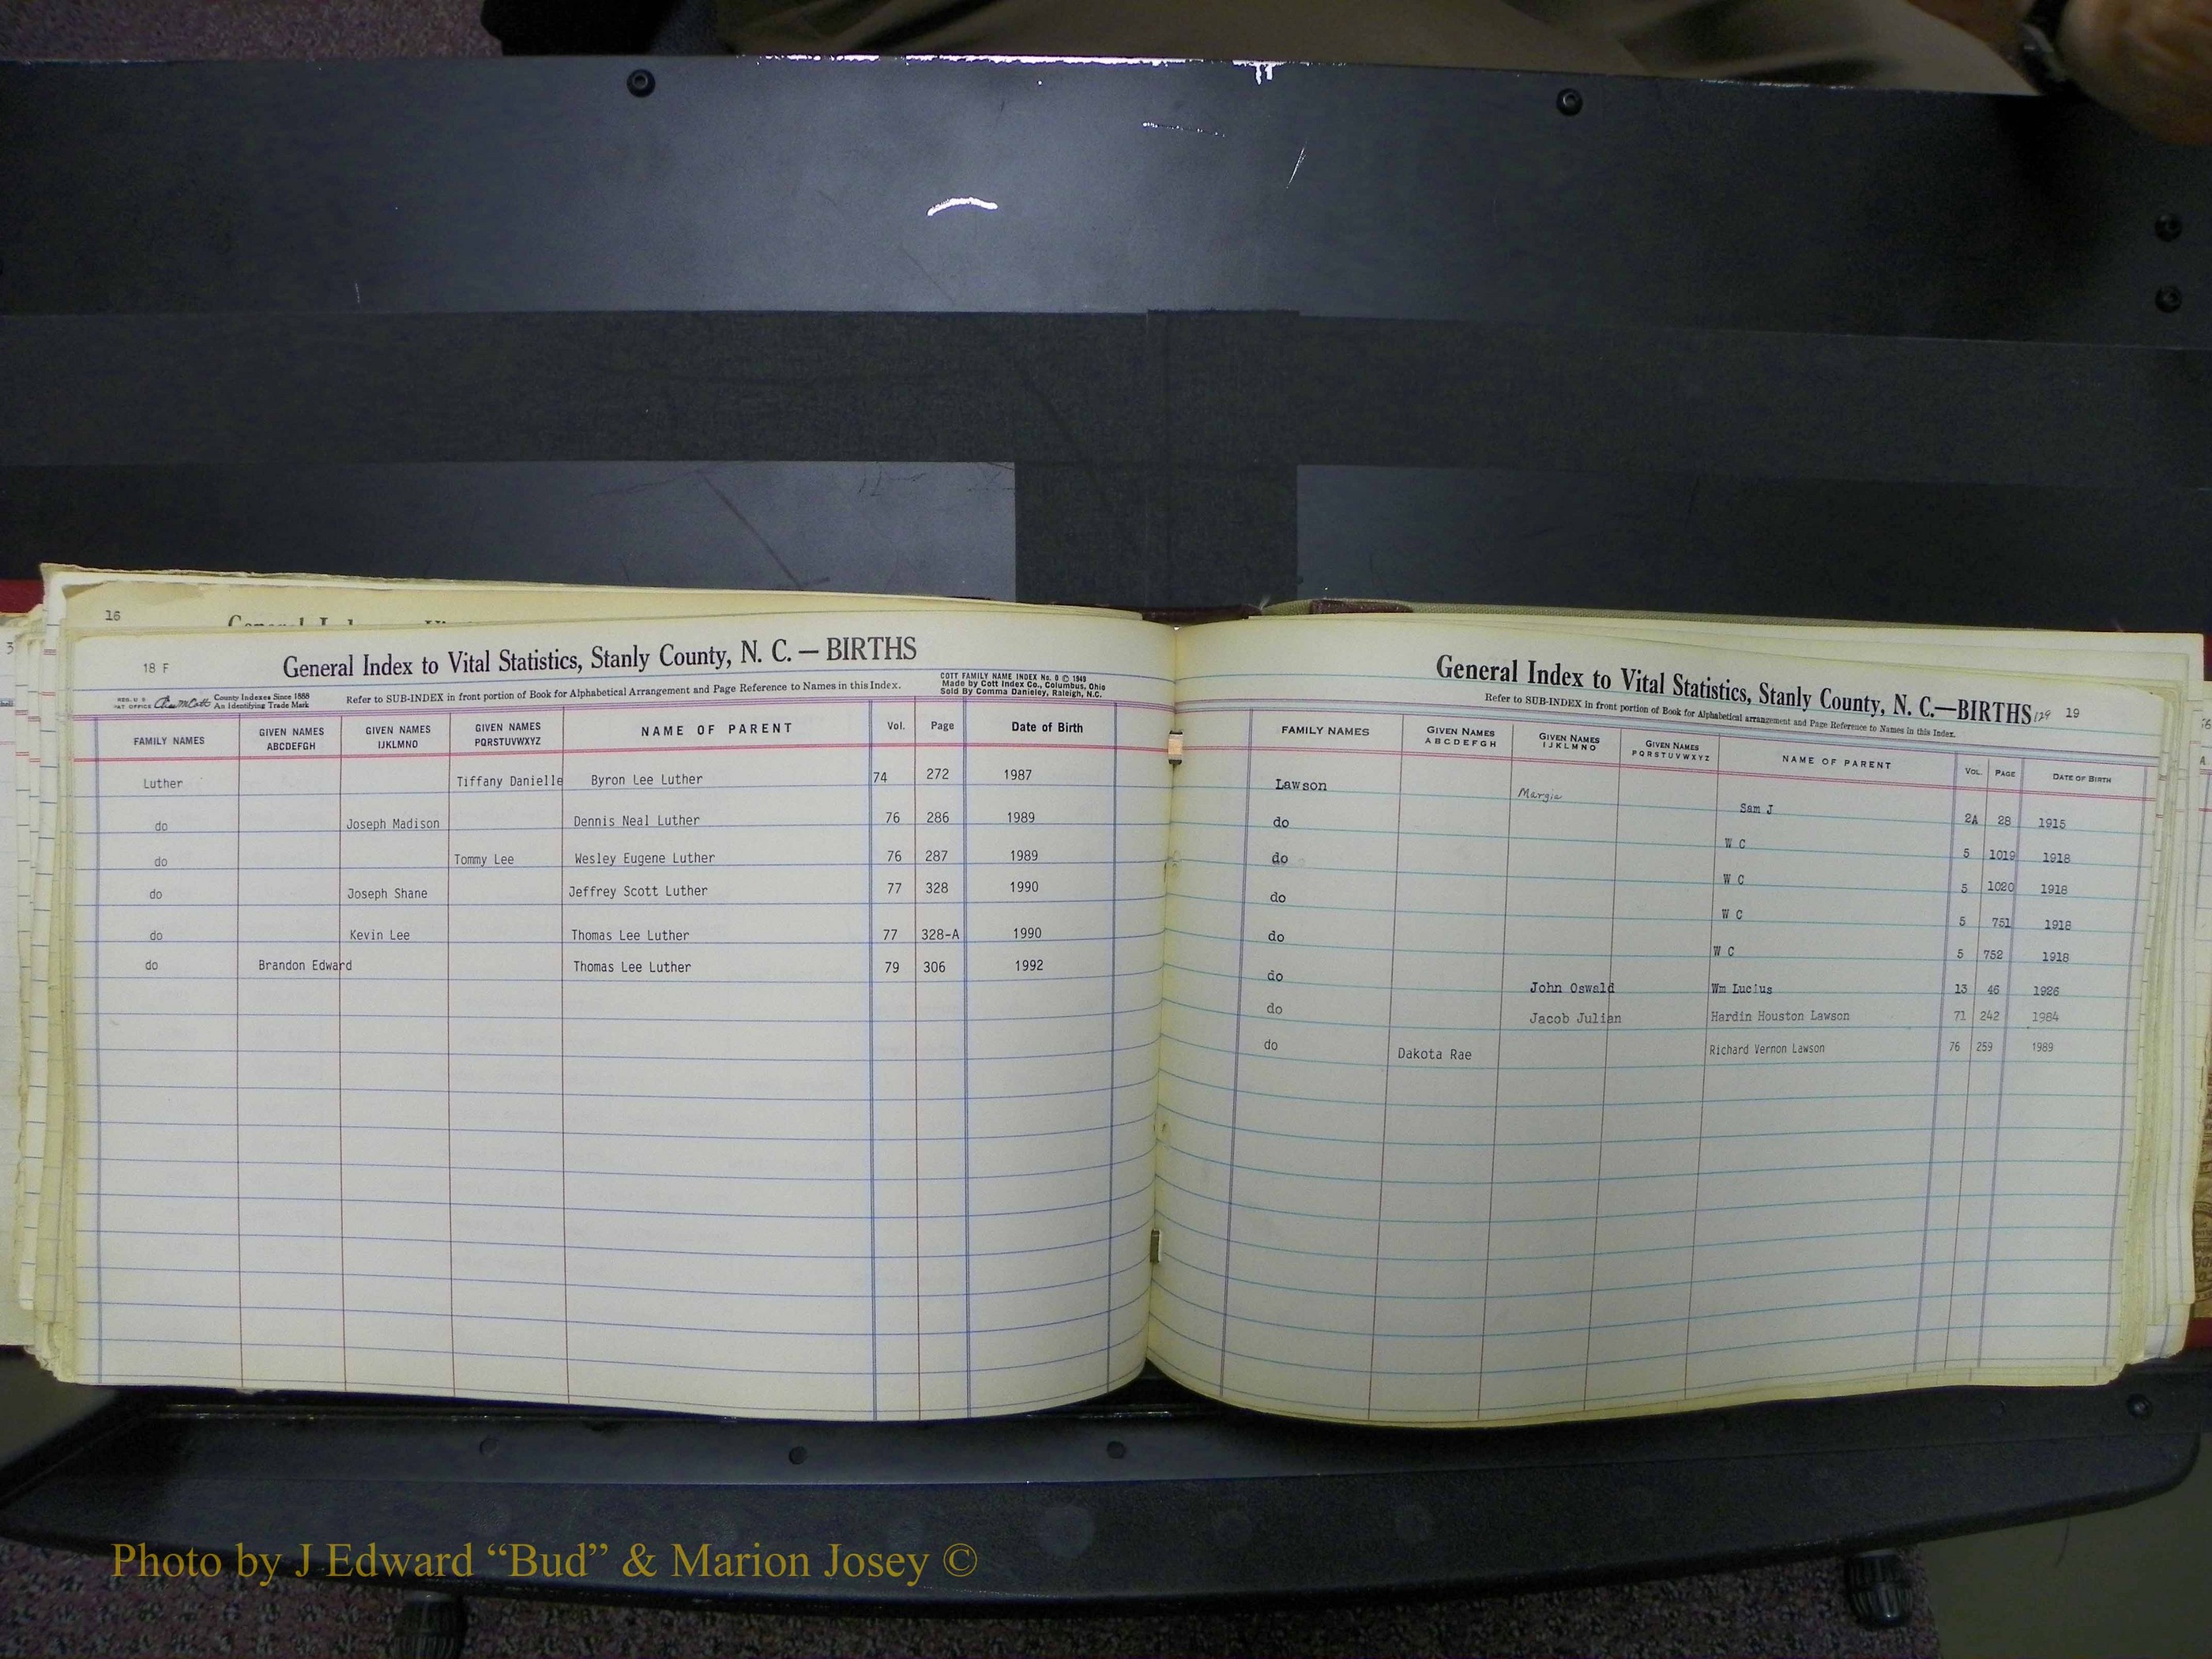 16
18 F
General Index to Vital Statistics, Stanly County, N. C. — BIRTHS
REG. U S PAT OFFICE County Indexes Since 1888 An Identifying Trade Mark
Refer to SUB-INDEX in front portion of Book for Alphabetical Arrangement and Page Reference to Names in this Index.
COTT FAMILY NAME INDEX No. 0 © 1949
Made by Cott Index Co., Columbus, Ohio
Sold By Comma Danieley, Raleigh, N.C.
FAMILY NAMES GIVEN NAMES ABCDEFGH GIVEN NAMES IJKLMNO GIVEN NAMES PQRSTUVWXYZ NAME OF PARENT Vol. Page Date of Birth
Luther Tiffany Danielle Byron Lee Luther 74 272 1987
do Joseph Madison Dennis Neal Luther 76 286 1989
do Tommy Lee Wesley Eugene Luther 76 287 1989
do Joseph Shane Jeffrey Scott Luther 77 328 1990
do Kevin Lee Thomas Lee Luther 77 328-A 1990
do Brandon Edward Thomas Lee Luther 79 306 1992
General Index to Vital Statistics, Stanly County, N. C.—BIRTHS 129 19
Refer to SUB-INDEX in front portion of Book for Alphabetical arrangement and Page Reference to Names in this Index.
FAMILY NAMES GIVEN NAMES ABCDEFGH GIVEN NAMES IJKLMNO GIVEN NAMES PQRSTUVWXYZ NAME OF PARENT VOL. PAGE DATE OF BIRTH
Lawson Margie Sam J 2A 28 1915
do W C 5 1019 1918
do W C 5 1020 1918
do W C 5 751 1918
do W C 5 752 1918
do John Oswald Wm Lucius 13 46 1926
do Jacob Julian Hardin Houston Lawson 71 242 1984
do Dakota Rae Richard Vernon Lawson 76 259 1989
Photo by J Edward “Bud” & Marion Josey ©